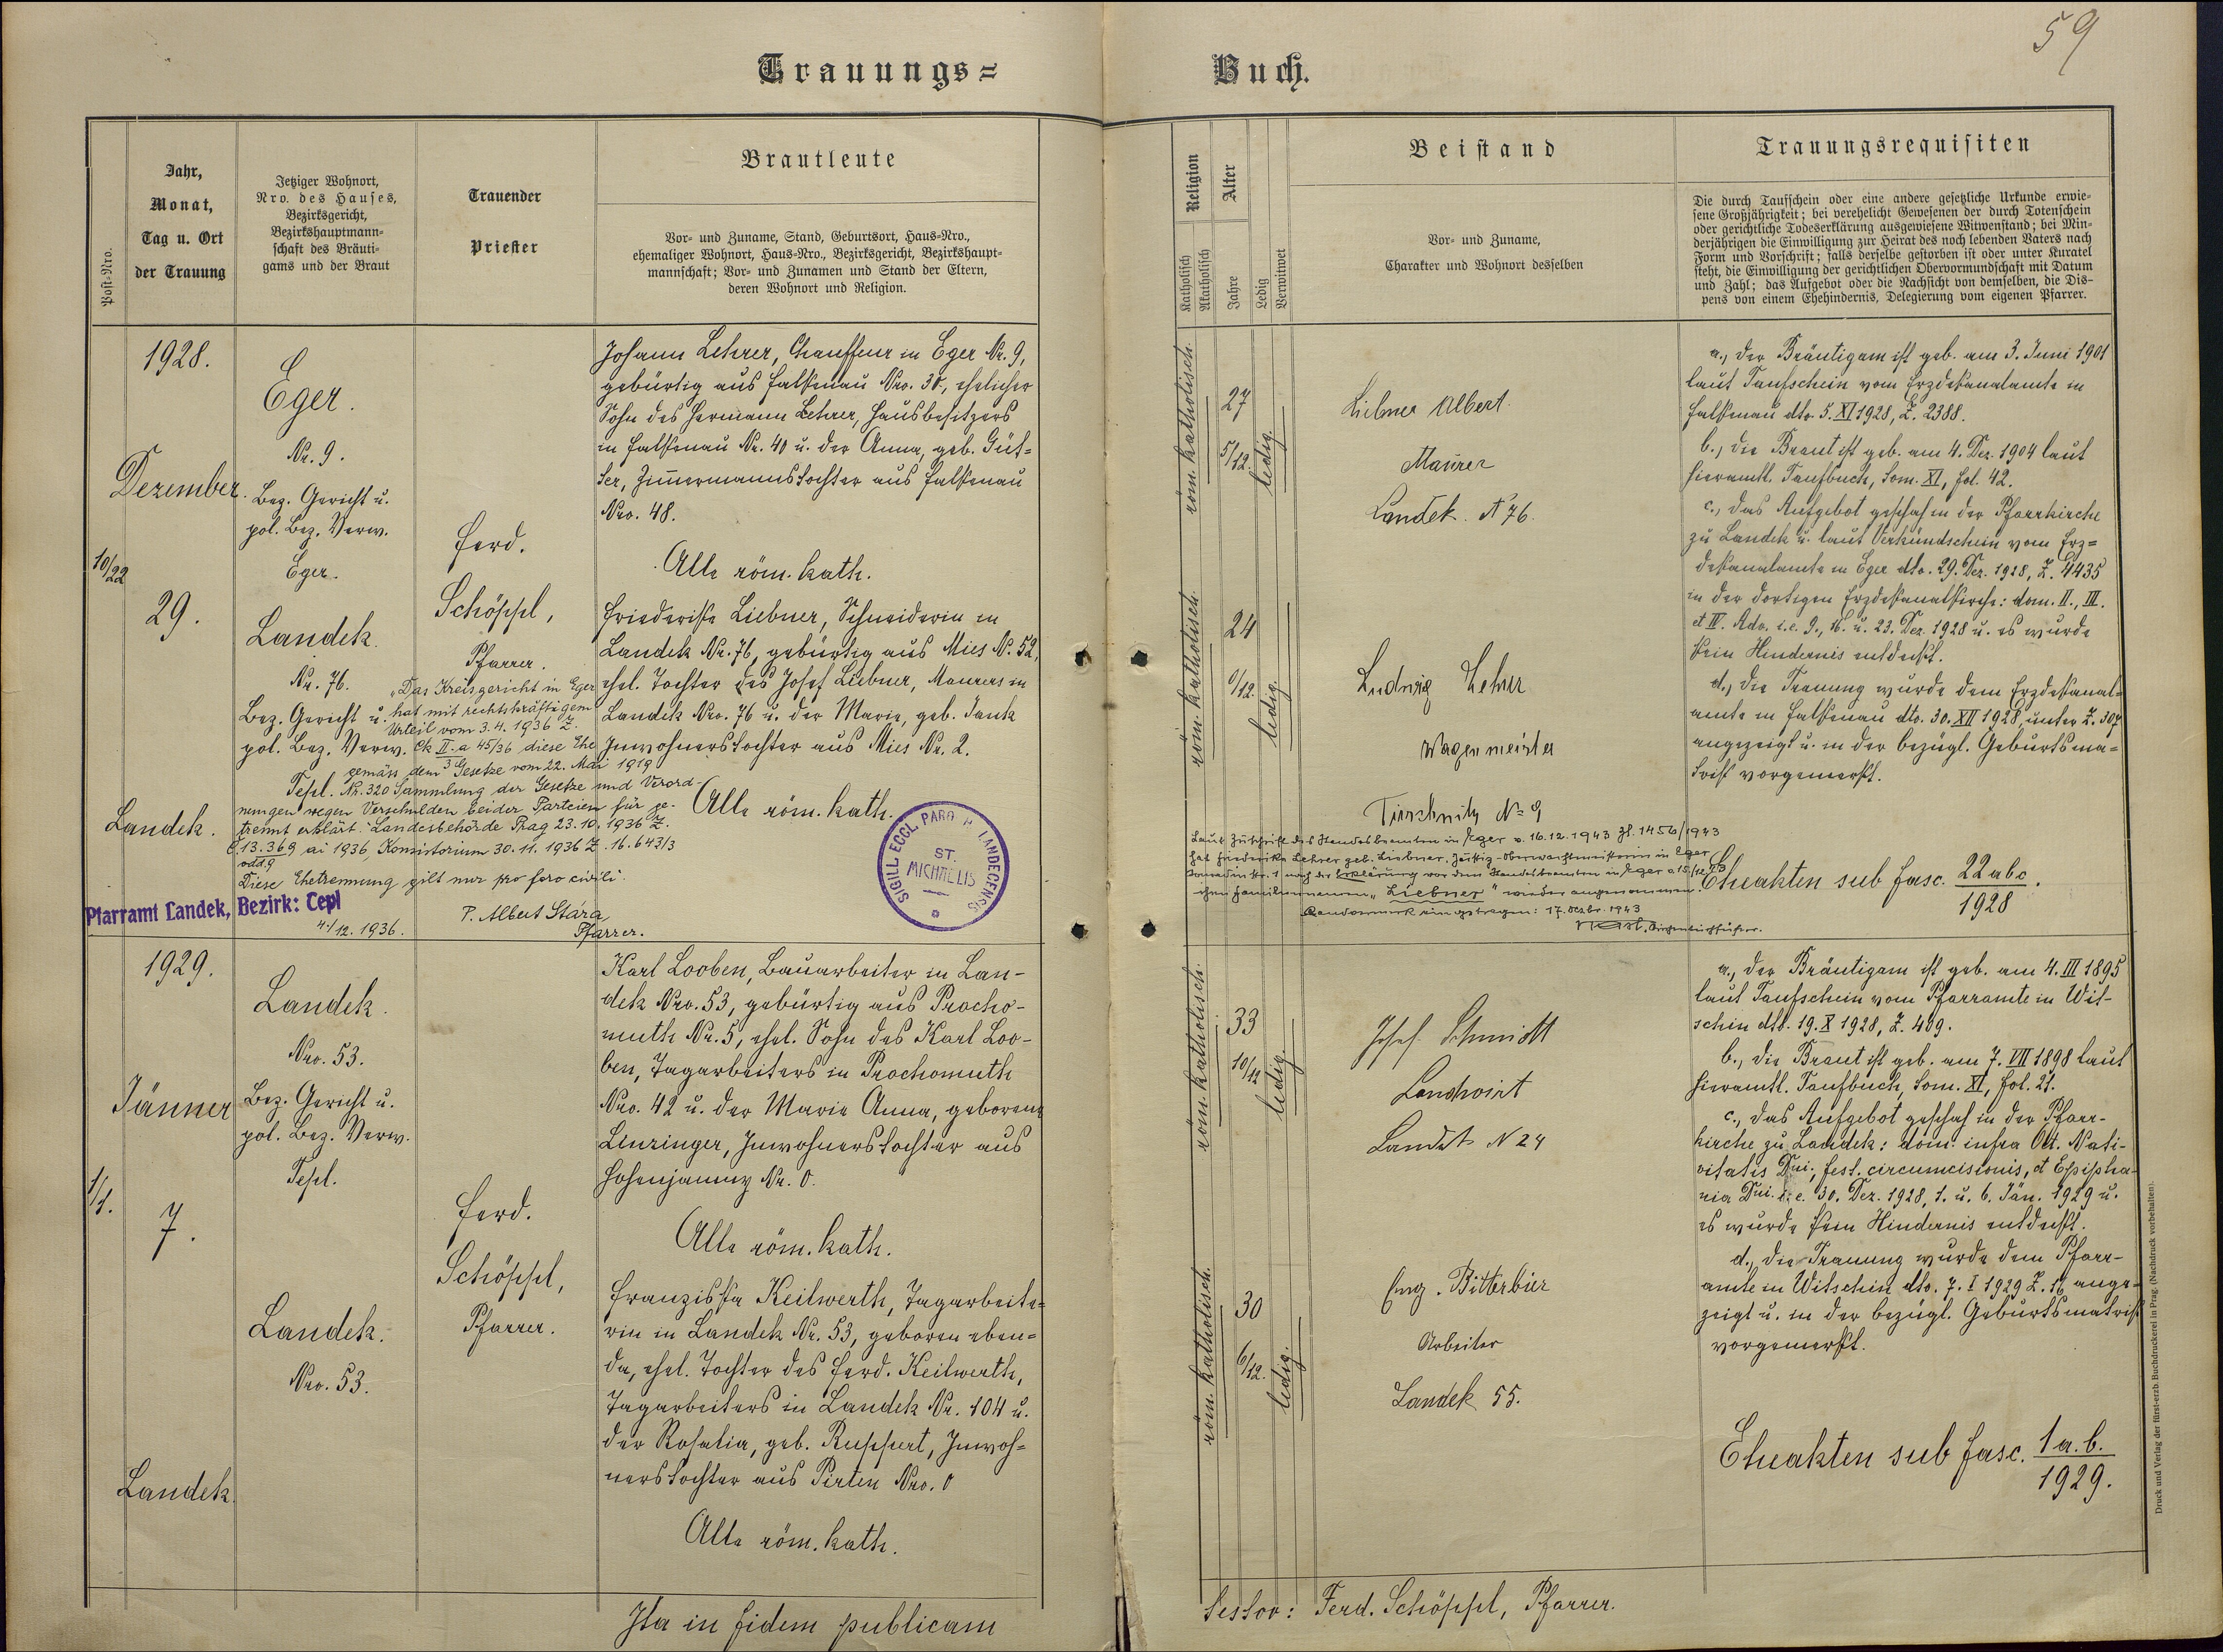 59
Trauungs=
Buch.
Post-Nro.
Jahr,
Monat,
Tag u. Ort
der Trauung
Jetziger Wohnort,
Nro. des Hauses,
Bezirksgericht,
Bezirkshauptmann-
schaft des Bräuti-
gams und der Braut
Trauender
Priester
Brautleute
Vor- und Zuname, Stand, Geburtsort, Haus-Nro.,
ehemaliger Wohnort, Haus-Nro., Bezirksgericht, Bezirkshaupt-
mannschaft; Vor- und Zunamen und Stand der Eltern,
deren Wohnort und Religion.
Religion
Katholisch
Akatholisch
Alter
Jahre
Ledig
Verwitwet
Beistand
Vor- und Zuname,
Charakter und Wohnort desselben
Trauungsrequisiten
Die durch Taufschein oder eine andere gesetzliche Urkunde erwie-
sene Großjährigkeit; bei verehelicht Gewesenen der durch Totenschein
oder gerichtliche Todeserklärung ausgewiesene Witwenstand; bei Min-
derjährigen die Einwilligung zur Heirat des noch lebenden Vaters nach
Form und Vorschrift; falls derselbe gestorben ist oder unter Kuratel
steht, die Einwilligung der gerichtlichen Obervormundschaft mit Datum
und Zahl; das Aufgebot oder die Nachsicht von demselben, die Dis-
pens von einem Ehehindernis, Delegierung vom eigenen Pfarrer.
10/22
1928.
Dezember.
29.
Landek.
Eger.
Nr. 9.
Bez. Gericht u.
pol. Bez. Verw.
Eger.
Landek.
Nr. 76.
Bez. Gericht u.
pol. Bez. Verw.
Tepl.
Ferd.
Schöppl,
Pfarrer.
Johann Lehrer, Chauffeur in Eger Nr. 9,
gebürtig aus Falkenau Nro. 30, ehelicher
Sohn des Hermann Lehrer, Hausbesitzers
in Falkenau Nr. 40 u. der Anna, geb. Güt=
ter, Zimmermannstochter aus Falkenau
Nro. 48.
Alle röm. kath.
Friederike Liebner, Schneiderin in
Landek Nr. 76, gebürtig aus Mies Nr. 52,
ehel. Tochter des Josef Liebner, Maurers in
Landek Nro. 76 u. der Marie, geb. Jank
Inwohnerstochter aus Mies Nr. 2.
Alle röm. kath.
"Das Kreisgericht in Eger
hat mit rechtskräftigem
Urteil vom 3. 4. 1936 Z
Ck II a 45/36 diese Ehe
3
gemäss dem Gesetze vom 22. Mai 1919
Nr. 320 Sammlung der Gesetze und Verord-
nungen wegen Verschulden beider Parteien für ge-
trennt erklärt. Landesbehörde Prag 23. 10. 1936 Z.
13.369 ai 1936, Konsistorium 30. 11. 1936 Z. 16.643/3
odd. 9
Diese Ehetrennung gilt nur pro foro civili.
Pfarramt Landek, Bezirk: Tepl
4./12. 1936.
P. Albert Stára,
Pfarrer.
SIGILL ECCL PARO H LANDECENSIS
ST.
MICHAELIS
röm. katholisch.
27
5/12.
ledig.
röm. katholisch.
24
0/12.
ledig.
Liebner Albert.
Maurer
Landek. N 76.
Ludwig Lehrer
Wagenmeister
Tirschnitz No 9
Laut Zuschrift des Standesbeamten in Eger v. 16.12.1943 Zl. 1456/1943
hat Friederike Lehrer geb. Liebner, Justiz-Oberwachtmeisterin in Eger,
nach der Erklärung vor dem Standesbeamten in Eger
ihren Familiennamen "Liebner" wieder angenommen.
Randvermerk eingetragen: 17. Dezbr. 1943
a., Der Bräutigam ist geb. am 3. Juni 1901
laut Taufschein vom Erzdekanalamte in
Falkenau dto. 5. XI 1928, Z. 2388.
b., die Braut ist geb. am 4. Dez. 1904 laut
hieramtl. Taufbuch, Tom. XI, fol. 42.
c., Das Aufgebot geschah in der Pfarrkirche
zu Landek u. laut Verkündschein vom Erz=
dekanalamte in Eger dto. 29. Dez. 1928, Z. 4435
in der dortigen Erzdekanalkirche: dom. II., III.
et IV. Adv. i. e. 9., 16. u. 23. Dez. 1928 u. es wurde
kein Hindernis entdeckt.
d., Die Trauung wurde dem Erzdekanal=
amte in Falkenau dto. 30. XII 1928 unter Z. 307
angezeigt u. in der bezügl. Geburtsma=
trik vorgemerkt.
Eheakten sub fasc. 22 abc.
1928
1/1.
1929.
Jänner
7.
Landek.
Landek.
Nro. 53.
Bez. Gericht u.
pol. Bez. Verw.
Tepl.
Landek.
Nro. 53.
Ferd.
Schöppl,
Pfarrer.
Karl Looben, Bauarbeiter in Lan-
dek Nro. 53, gebürtig aus Procho-
muth Nr. 5, ehel. Sohn des Karl Loo-
ben, Tagarbeiters in Prochomuth
Nro. 42 u. der Marie Anna, geborene
Lenzinger, Inwohnerstochter aus
Hohenjamny Nr. 0.
Alle röm. kath.
Franziska Keilwerth, Tagarbeite=
rin in Landek Nr. 53, geboren eben=
da, ehel. Tochter des Ferd. Keilwerth,
Tagarbeiters in Landek Nr. 104 u.
der Rosalia, geb. Ruppert, Inwoh=
nerstochter aus Pirten Nro. 0
Alle röm. kath.
röm. katholisch.
33
10/12
ledig.
röm. katholisch.
30
6/12.
ledig.
Josef Schmidt
Landwirt
Landek N 24
Eng. Bitterbier
Arbeiter
Landek 55.
a., der Bräutigam ist geb. am 4. III 1895
laut Taufschein vom Pfarramte in Wit-
schin dto. 19. X 1928, Z. 409.
b., die Braut ist geb. am 7. VII 1898 laut
hieramtl. Taufbuch, Tom. XI, fol. 21.
c., Das Aufgebot geschah in der Pfarr-
kirche zu Landek: dom. infra Oct. Nati-
vitatis Dni., fest. circumcisionis, et Epipha-
nia Dni. i. e. 30. Dez. 1928, 1. u. 6. Jän. 1929 u.
es wurde kein Hindernis entdeckt.
d., die Trauung wurde dem Pfarr-
amte in Witschin dto. 7. I 1929 Z. 16 ange-
zeigt u. in der bezügl. Geburtsmatrik
vorgemerkt.
Eheakten sub fasc. 1 a. b.
1929.
Ita in fidem publicam
testor: Ferd. Schöppl, Pfarrer.
Druck und Verlag der fürst-erzb. Buchdruckerei in Prag. (Nachdruck vorbehalten).